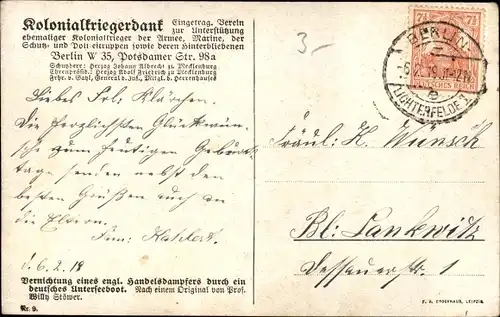 Kolonialkriegerdank Eingetrag. Verein
zur Unterstützung
ehemaliger Kolonialkrieger der Armee, Marine, der
Schutz- und Polizeitruppen sowie deren Hinterbliebenen
Berlin W 35, Potsdamer Str. 98a
Schutzherr: Herzog Johann Albrecht zu Mecklenburg
Ehrenpräsid.: Herzog Adolf Friedrich zu Mecklenburg
Frhr. v. Gayl, General d. Inf., Mitgl. d. Herrenhauses
3-
7½ 7½
DEUTSCHES REICH
BERLIN
LICHTERFELDE
Liebes Frl. Klärchen.
Die herzlichsten Glückwün-
sche zum heutigen Geburts
tage senden nebst den
besten Grüßen auch an
die Eltern
Fam:
d. 6.2.19
Fräul: K. Wunsch
Bl: Lankwitz
Dessauerstr. 1
Vernichtung eines engl. Handelsdampfers durch ein
deutsches Unterseeboot. Nach einem Original von Prof.
Willy Stöwer.
Nr. 9.
F. A. BROCKHAUS, LEIPZIG.